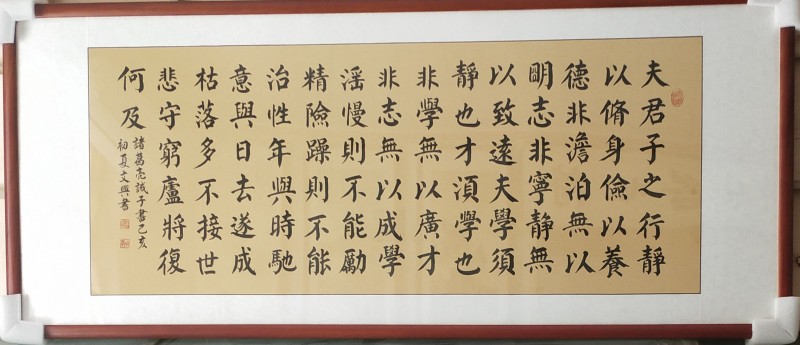 夫君子之行靜
以脩身儉以養
德非澹泊無以
明志非寧靜無
以致遠夫學須
靜也才湏學也
非學無以廣才
非志無以成學
滛慢則不能勵
精險躁則不能
治性年與時馳
意與日去遂成
枯落多不接世
悲守窮廬將復
何及
諸葛亮誡子書己亥
初夏文興書